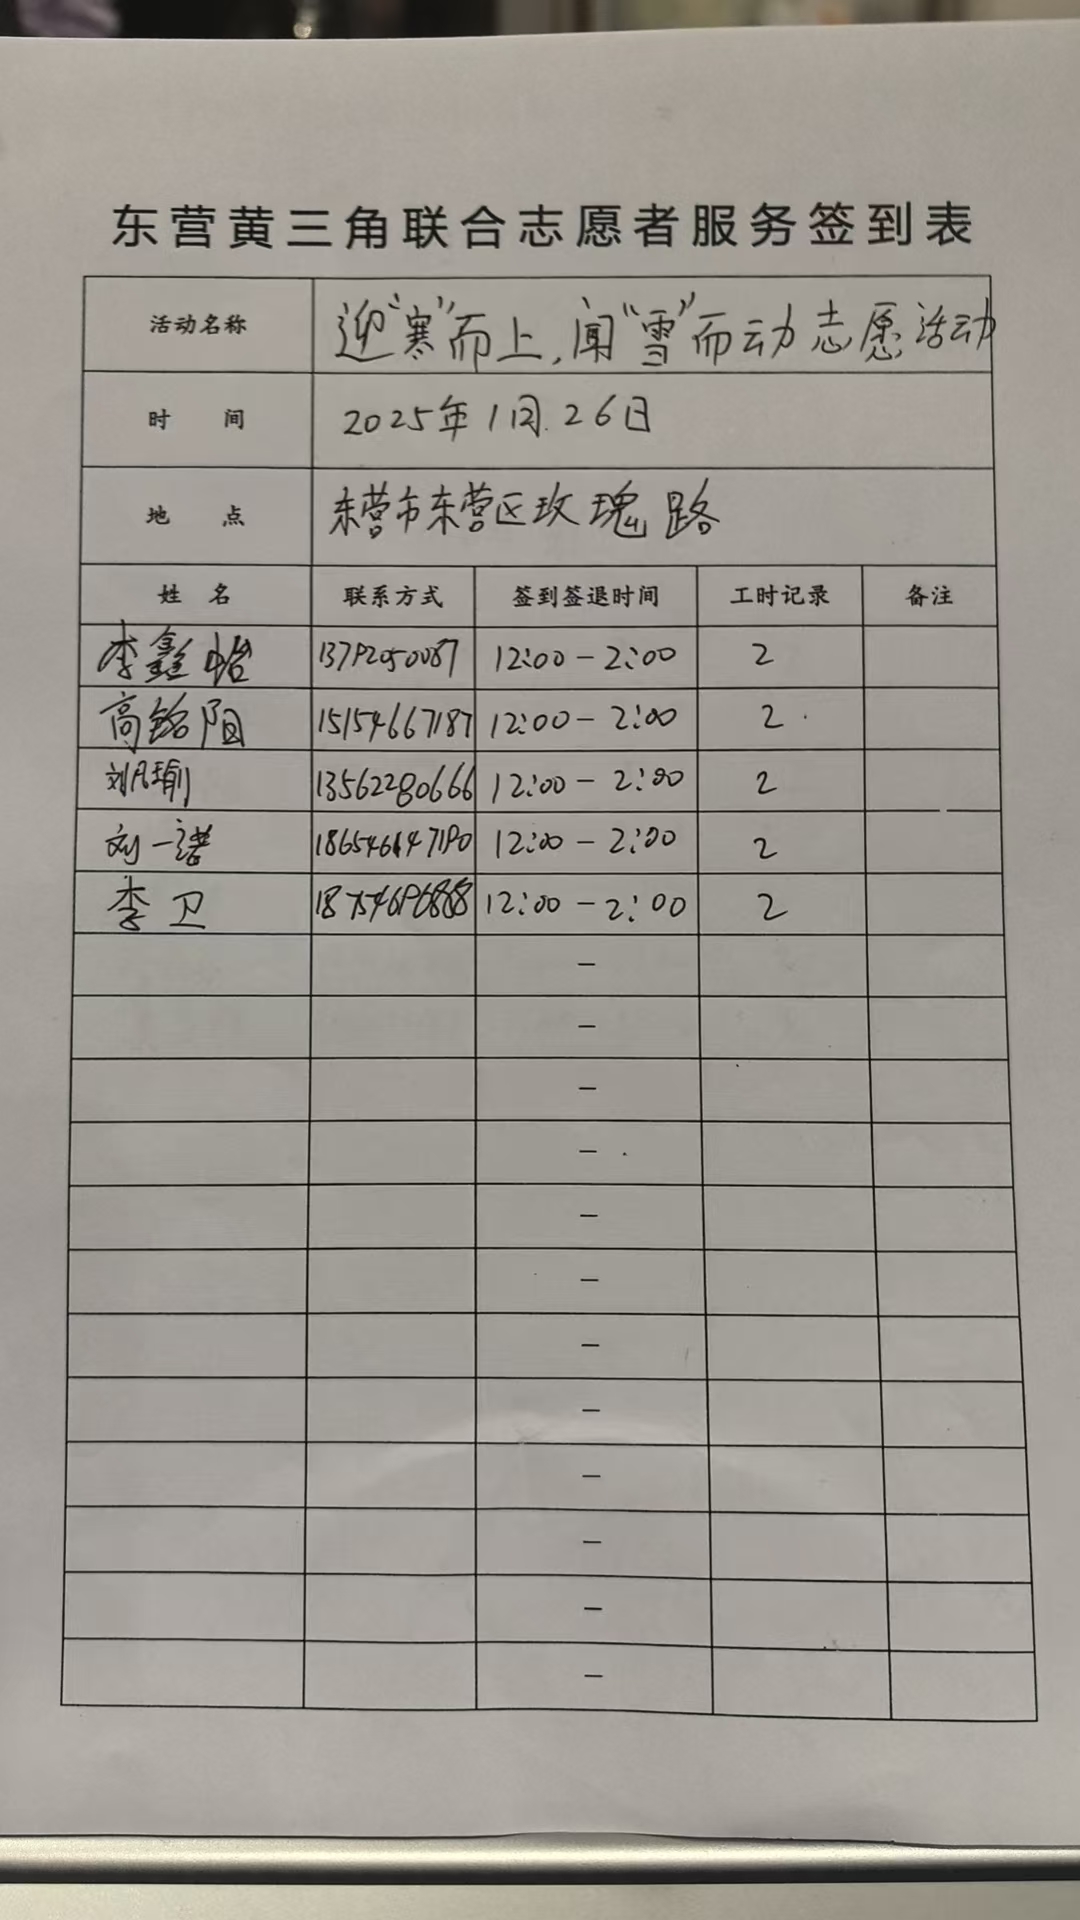 东营黄三角联合志愿者服务签到表
活动名称 迎“寒”而上,闻“雪”而动志愿活动
时 间 2025年1月26日
地 点 东营市东营区玫瑰路
姓 名 联系方式 签到签退时间 工时记录 备注
李鑫怡 13792050087 12:00-2:00 2
高铭阳 15154667187 12:00-2:00 2
刘凡瑜 13562280666 12:00-2:00 2
刘一诺 18654647190 12:00-2:00 2
李卫 12:00-2:00 2
-
-
-
-
-
-
-
-
-
-
-
-